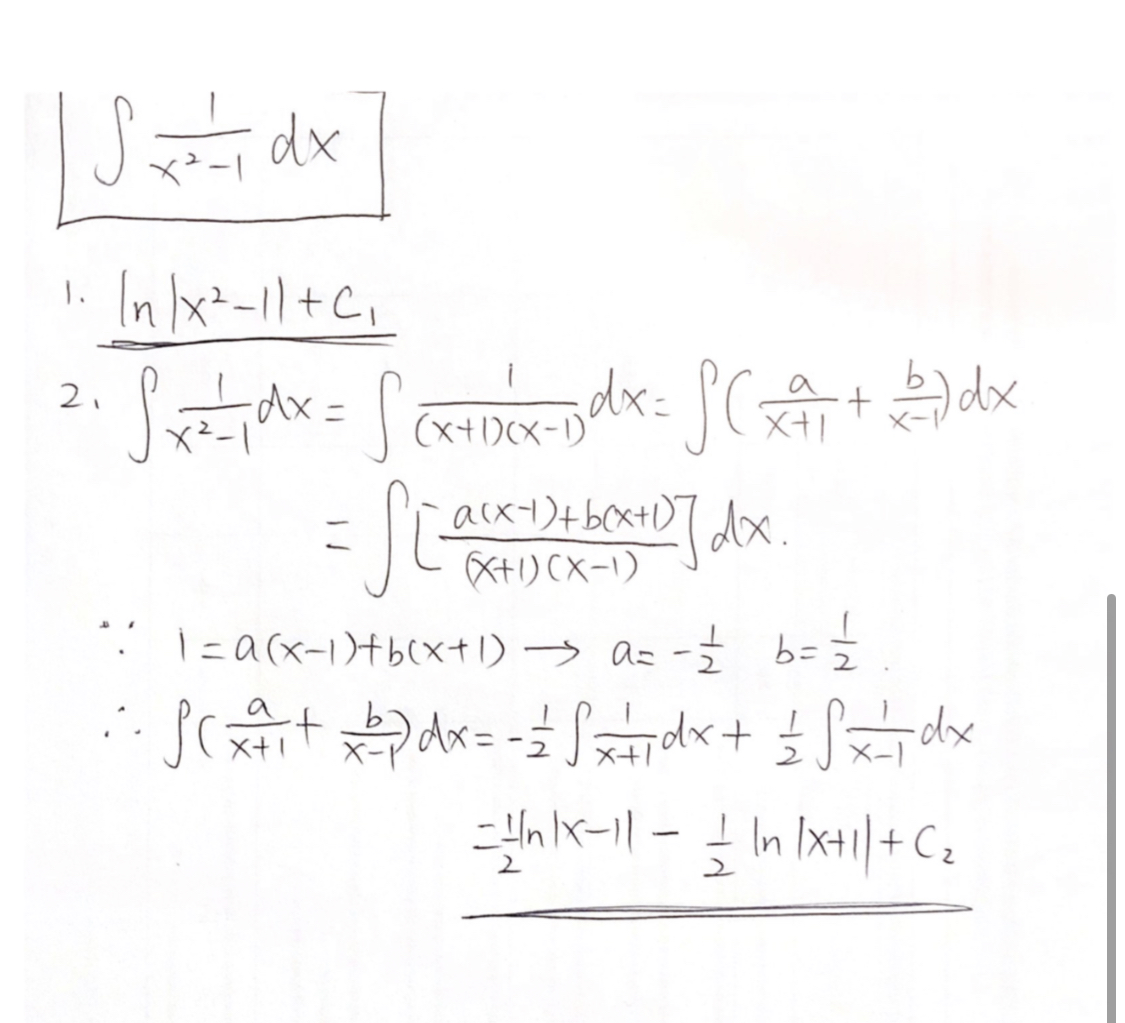 ∫ 1/(x²-1) dx
1. ln|x²-1| + C₁
2. ∫ 1/(x²-1) dx = ∫ 1/((x+1)(x-1)) dx = ∫( a/(x+1) + b/(x-1) ) dx
= ∫[ (a(x-1)+b(x+1))/((x+1)(x-1)) ] dx.
∵ 1 = a(x-1)+b(x+1) → a = -1/2 b = 1/2.
∴ ∫( a/(x+1) + b/(x-1) ) dx = -1/2 ∫ 1/(x+1) dx + 1/2 ∫ 1/(x-1) dx
= 1/2 ln|x-1| - 1/2 ln|x+1| + C₂